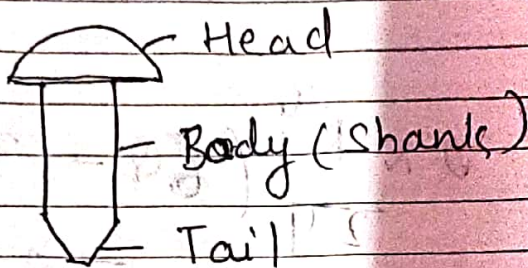 Head
Body (Shank)
Tail